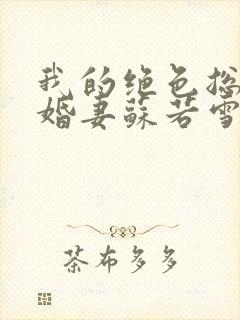 我的绝色总
婚妻苏若雪
茶布多多